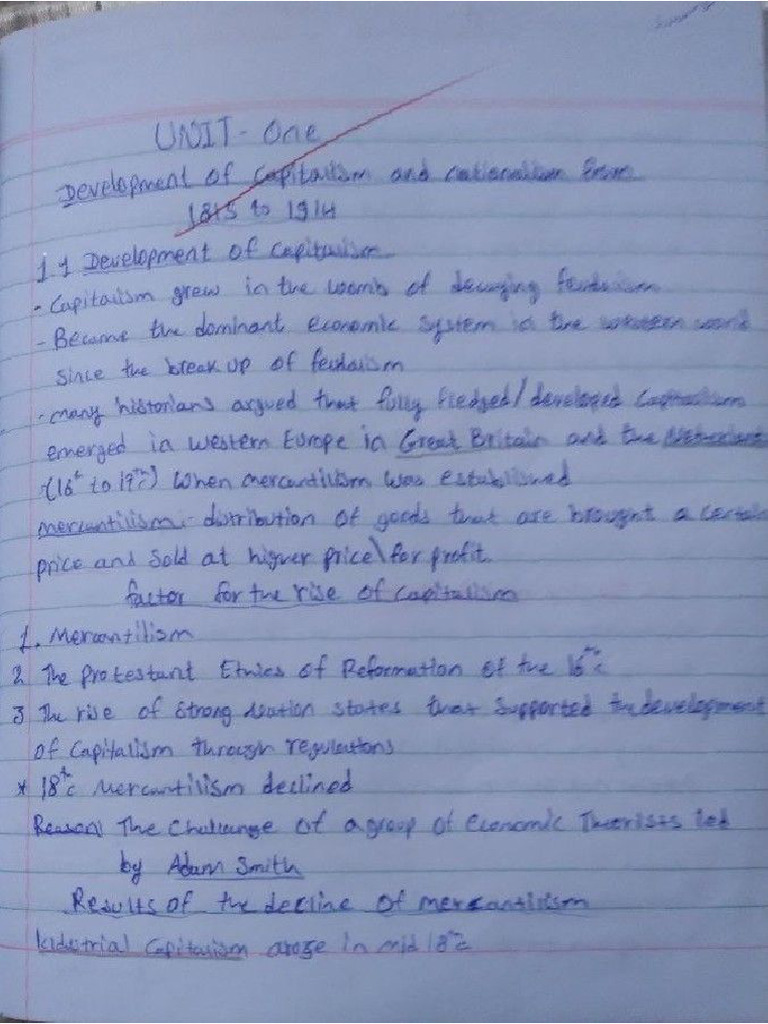 UNIT - One
Development of Capitalism and nationalism from
1815 to 1914
1.1 Development of Capitalism
- Capitalism grew in the womb of decaying feudalism
- Became the dominant economic system in the western world
since the break up of feudalism
- many historians argued that fully fledged/developed Capitalism
emerged in western Europe in Great Britain and the Netherlands
(16th to 19th c) When mercantilism was established
mercantilism:- distribution of goods that are brought a certain
price and sold at higher price\for profit.
factor for the rise of Capitalism
1. Mercantilism
2 The protestant Ethics of Reformation of the 16th c
3 The rise of strong nation states that supported the development
of Capitalism through regulations
* 18th c Mercantilism declined
Reason: The Challenge of a group of economic Theorists led
by Adam Smith
Results of the decline of mercantilism
Industrial Capitalism arose in mid 18th c